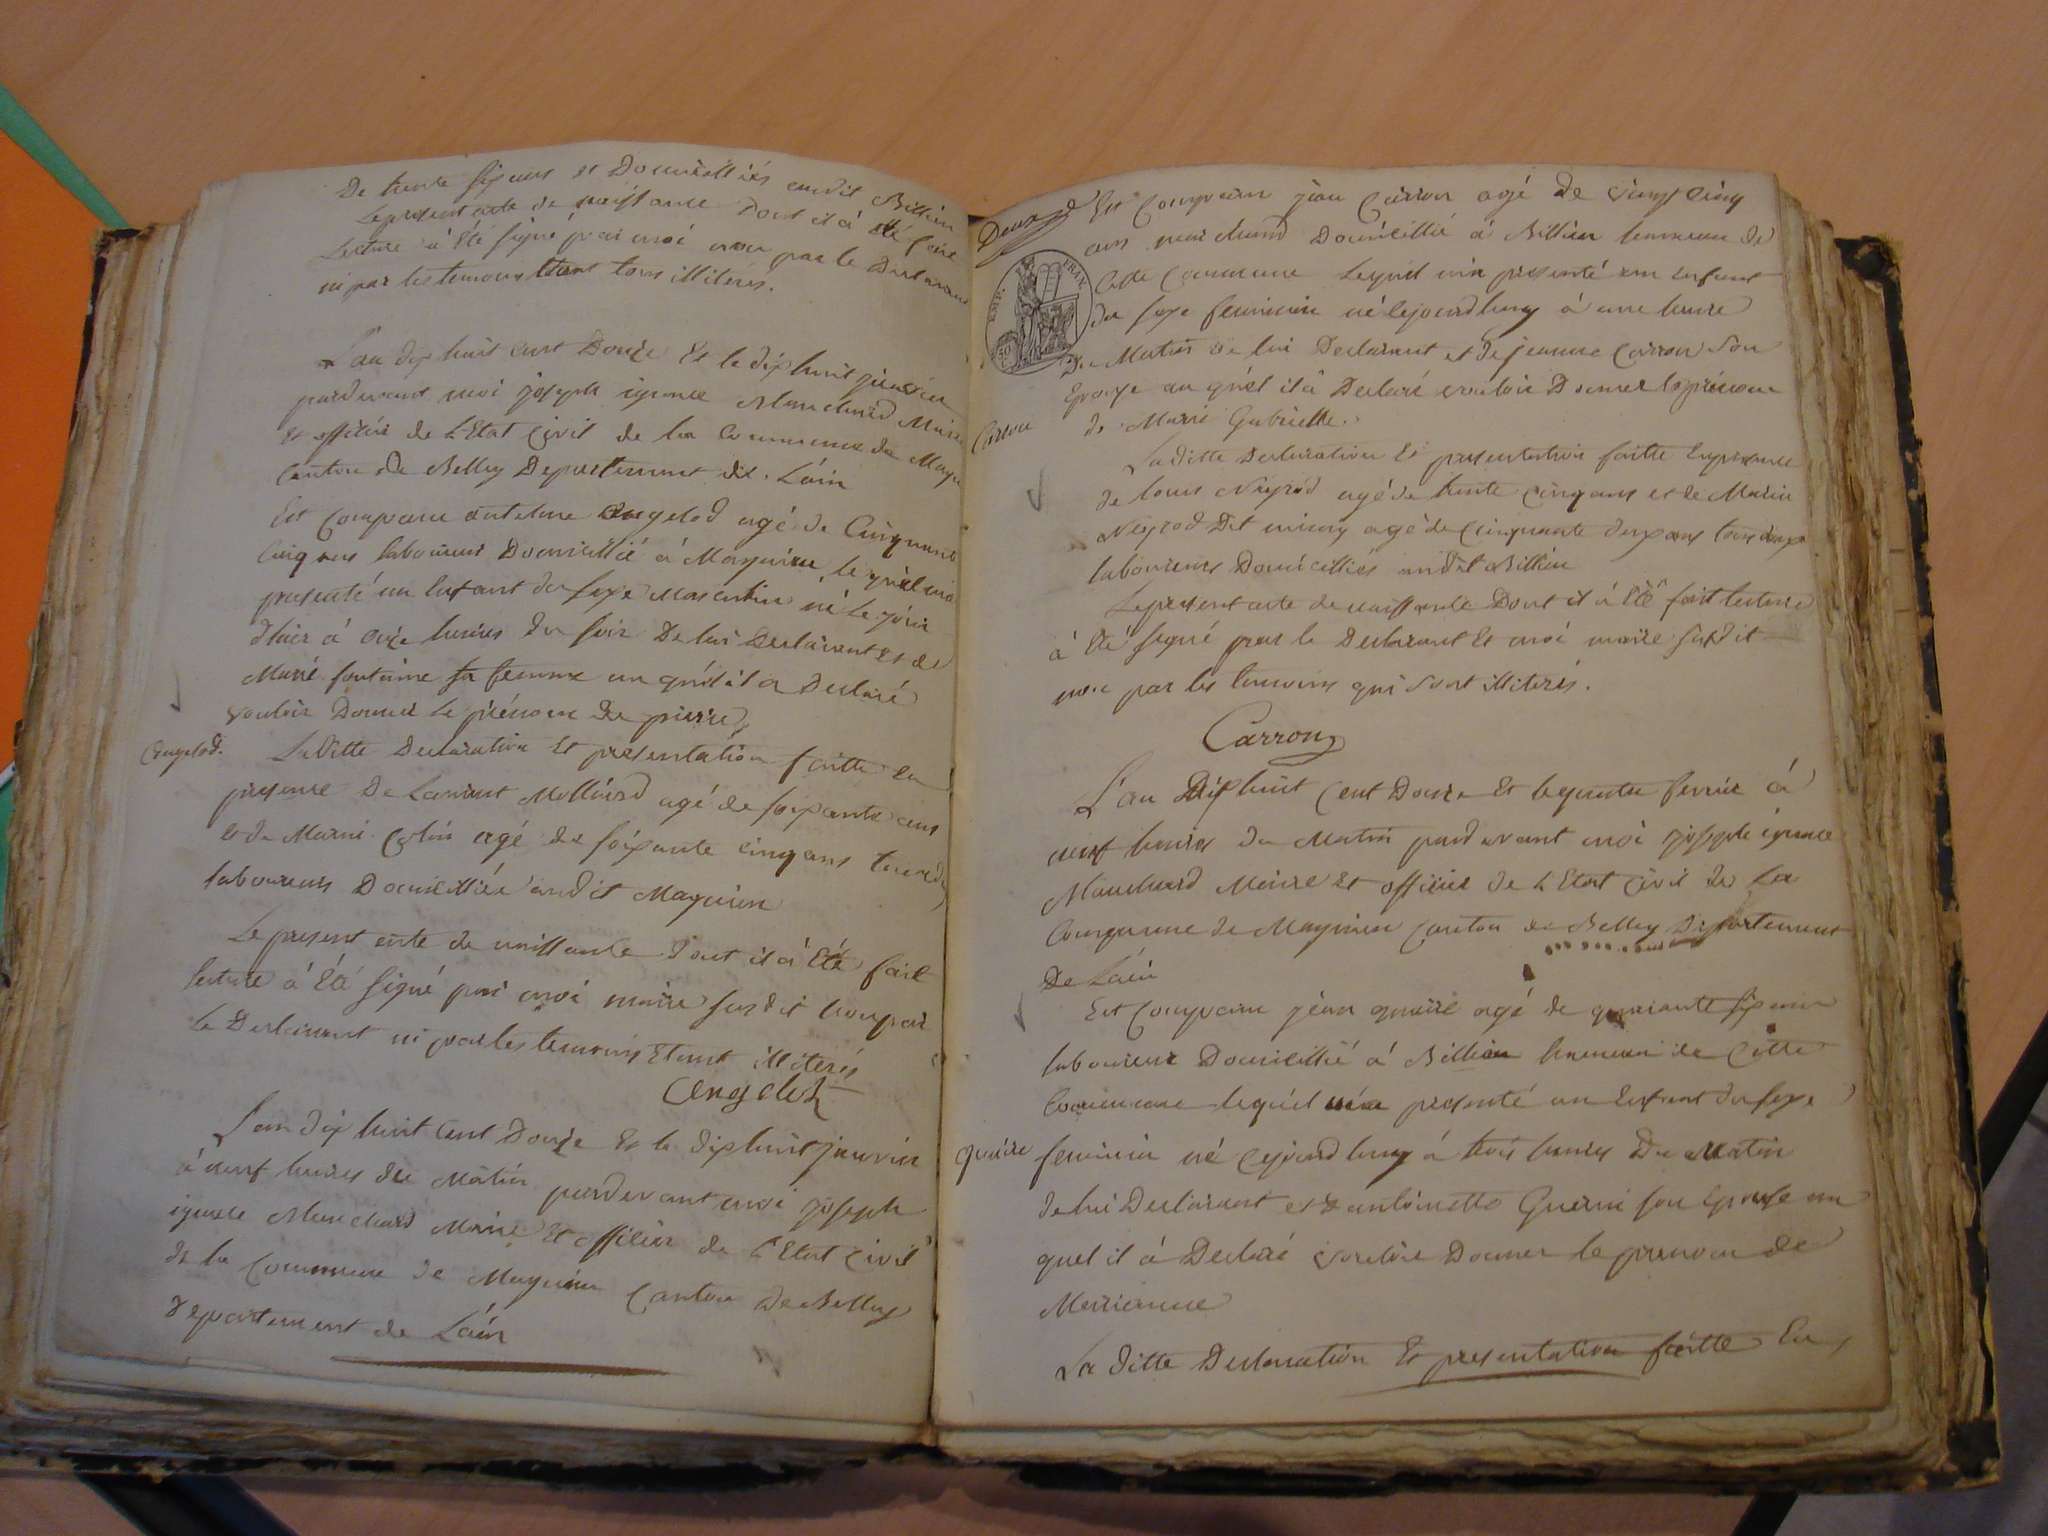 De trente six ans et Domicilliés audit Billieu
Le présent acte de naissance dont il à été faite
lecture à Eté signé par moi non par le Declarant
ni par les temoins étant tous illiterés.
L'an dix huit cent Douze Et le dix huit janvier
pardevant moi joseph ignace Marchand Maire
Et officier de L'Etat Civil de la Commune de Magn
Canton de Belley Departement de L'ain
Est Comparu antelme angelod agé de Cinquante
Cinq ans laboureur Domicillié à Magnieu, lequel m'a
presenté un Enfant du sexe Masculin né Le jour
d'hier à onze heures du soir De lui Declarant et de
Marie fontaine sa femme au quel il a Declaré
vouloir Donner Le prénom de pierre
angelod.
La Ditte Declaration Et presentation faitte En
presence De Laurent Mollard agé de soixante ans
et de Marin agé de soixante cinq ans tous deux
laboureurs Domicilliés audit Magnieu
Le present acte de naissance Dont il à Eté fait
lecture à Eté signé par moi maire susdit non par
Le Declarant ni par les temoins Etant illiterés
angelod
L'an dix huit cent Douze Et le dix huit janvier
à neuf heures du Matin pardevant moi joseph
ignace Marchand Maire Et officier de L'Etat Civil
de la Commune de Magnieu Canton de Belley
Departement de L'ain
EMP. FRAN.
50
Est Comparu jean Carron agé de vingt Cinq
ans marchand Domicillié à Billieu hameau de
Cette Commune Lequel m'a presenté un Enfant
du sexe feminin né cejourdhuy à une heure
Du Matin de lui Declarant et de jeanne Carron Son
Epouse au quel il à Declaré vouloir Donner le prénom
de Marie Gabrielle.
Carron
La ditte Declaration Et presentation faitte En presence
de louis Neyrod agé de trente cinq ans et de Marin
Neyrod Dit agé de Cinquante deux ans tous deux
laboureurs Domicilliés audit Billieu
Le present acte de naissance Dont il à Eté fait lecture
à Eté signé par le Declarant Et moi maire susdit
non par les temoins qui sont illiterés.
Carron
L'an Dix huit Cent Douze Et le quatre fevrier à
neuf heures du Matin pardevant moi joseph ignace
Marchand Maire Et officier de L'Etat Civil de La
Commune de Magnieu Canton de Belley Departement
De L'ain
Est Comparu jean quaire agé de quarante six ans
laboureur Domicillié à Billieu hameau de Cette
Commune lequel m'a presenté un Enfant du sexe
quaire
feminin né cejourdhuy à trois heures Du Matin
de lui Declarant et d'antoinette Guerin son Epouse au
quel il à Declaré vouloir Donner le prenom de
Marianne
La ditte Declaration Et presentation faitte En